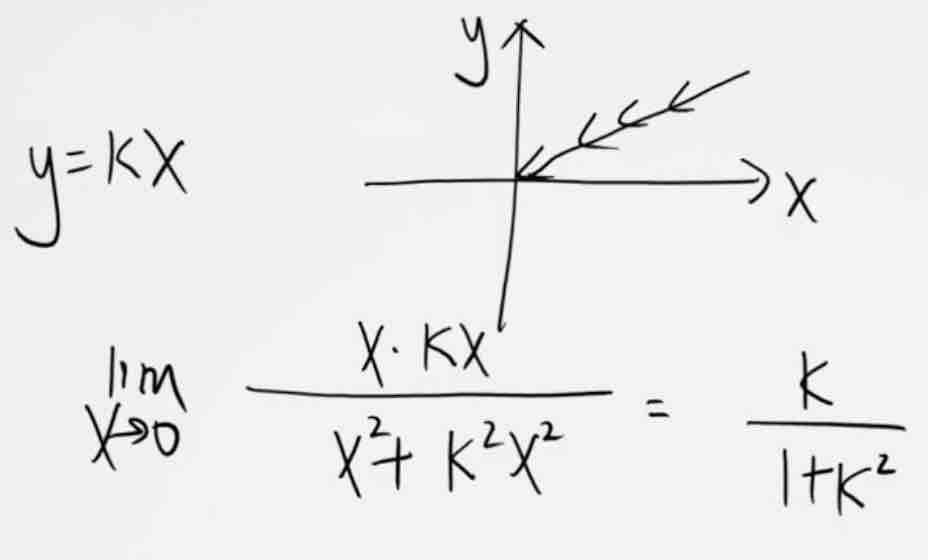 y
y=KX
X
lim X→0 X·KX / X²+K²X² = K / 1+K²